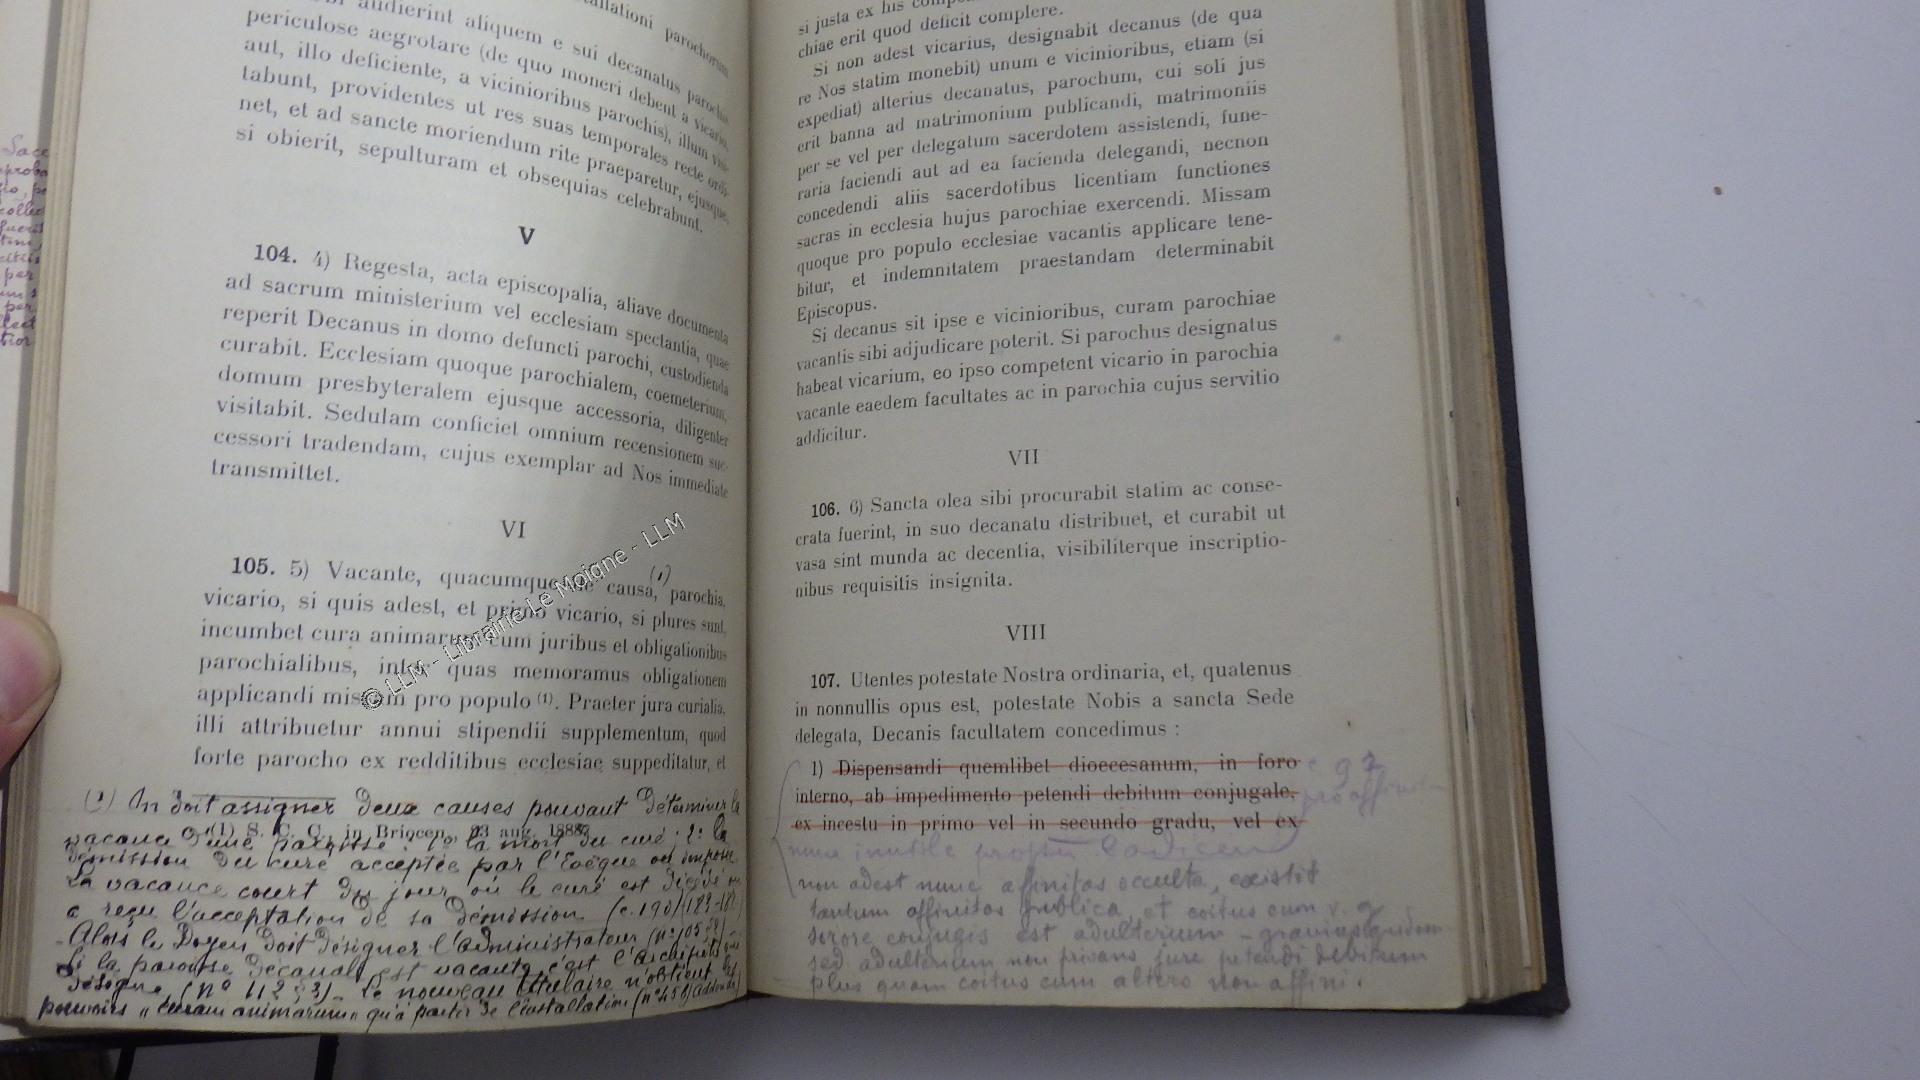 audierint aliquem e sui decanatus
periculose aegrotare (de quo moneri debent a vicario,
aut, illo deficiente, a vicinioribus parochis), illum
tabunt, providentes ut res suas temporales recte ordi-
net, et ad sancte moriendum rite praeparetur, ejusque,
si obierit, sepulturam et obsequias celebrabunt.
V
104. 4) Regesta, acta episcopalia, aliave documenta
ad sacrum ministerium vel ecclesiam spectantia, quae
reperit Decanus in domo defuncti parochi, custodienda
curabit. Ecclesiam quoque parochialem, coemeterium,
domum presbyteralem ejusque accessoria, diligenter
visitabit. Sedulam conficiet omnium recensionem suc-
cessori tradendam, cujus exemplar ad Nos immediate
transmittet.
VI
105. 5) Vacante, quacumque de causa, (1) parochia,
vicario, si quis adest, et primo vicario, si plures sunt,
incumbet cura animarum cum juribus et obligationibus
parochialibus, inter quas memoramus obligationem
applicandi missam pro populo (1). Praeter jura curialia,
illi attribuetur annui stipendii supplementum, quod
forte parocho ex redditibus ecclesiae suppeditatur, et
(1) S. C. C., in Briocen., 23 aug. 1888.
(1) On doit assigner deux causes pouvant déterminer la
vacance d'une paroisse : 1º la mort du curé ; 2º la
démission du curé acceptée par l'Evêque ou imposée
La vacance court du jour où le curé est décédé ou
a reçu l'acceptation de sa démission (c. 190)
Alors le Doyen doit désigner l'administrateur
Si la paroisse décanale est vacante c'est l'archiprêtre
désigne, (nº 112, 3) - Le nouveau titulaire n'obtient les
pouvoirs "curam animarum" qu'à partir de l'installation
© LLM - Librairie Le Moiane - LLM
si justa ex his
chiae erit quod deficit complere.
Si non adest vicarius, designabit decanus (de qua
re Nos statim monebit) unum e vicinioribus, etiam (si
expediat) alterius decanatus, parochum, cui soli jus
erit banna ad matrimonium publicandi, matrimoniis
per se vel per delegatum sacerdotem assistendi, fune-
raria faciendi aut ad ea facienda delegandi, necnon
concedendi aliis sacerdotibus licentiam functiones
sacras in ecclesia hujus parochiae exercendi. Missam
quoque pro populo ecclesiae vacantis applicare tene-
bitur, et indemnitatem praestandam determinabit
Episcopus.
Si decanus sit ipse e vicinioribus, curam parochiae
vacantis sibi adjudicare poterit. Si parochus designatus
habeat vicarium, eo ipso competent vicario in parochia
vacante eaedem facultates ac in parochia cujus servitio
addicitur.
VII
106. 6) Sancta olea sibi procurabit statim ac conse-
crata fuerint, in suo decanatu distribuet, et curabit ut
vasa sint munda ac decentia, visibiliterque inscriptio-
nibus requisitis insignita.
VIII
107. Utentes potestate Nostra ordinaria, et, quatenus
in nonnullis opus est, potestate Nobis a sancta Sede
delegata, Decanis facultatem concedimus :
1) Dispensandi quemlibet dioecesanum, in foro
interno, ab impedimento petendi debitum conjugale,
ex incestu in primo vel in secundo gradu, vel ex
nunc inutile propter Codicem
non adest nunc affinitas occulta, existit
tantum affinitas publica, et coitus cum v. g.
sorore conjugis est adulterium - gravius quidem
sed adulterium non privans jure petendi debitum
plus quam coitus cum altera non affini.